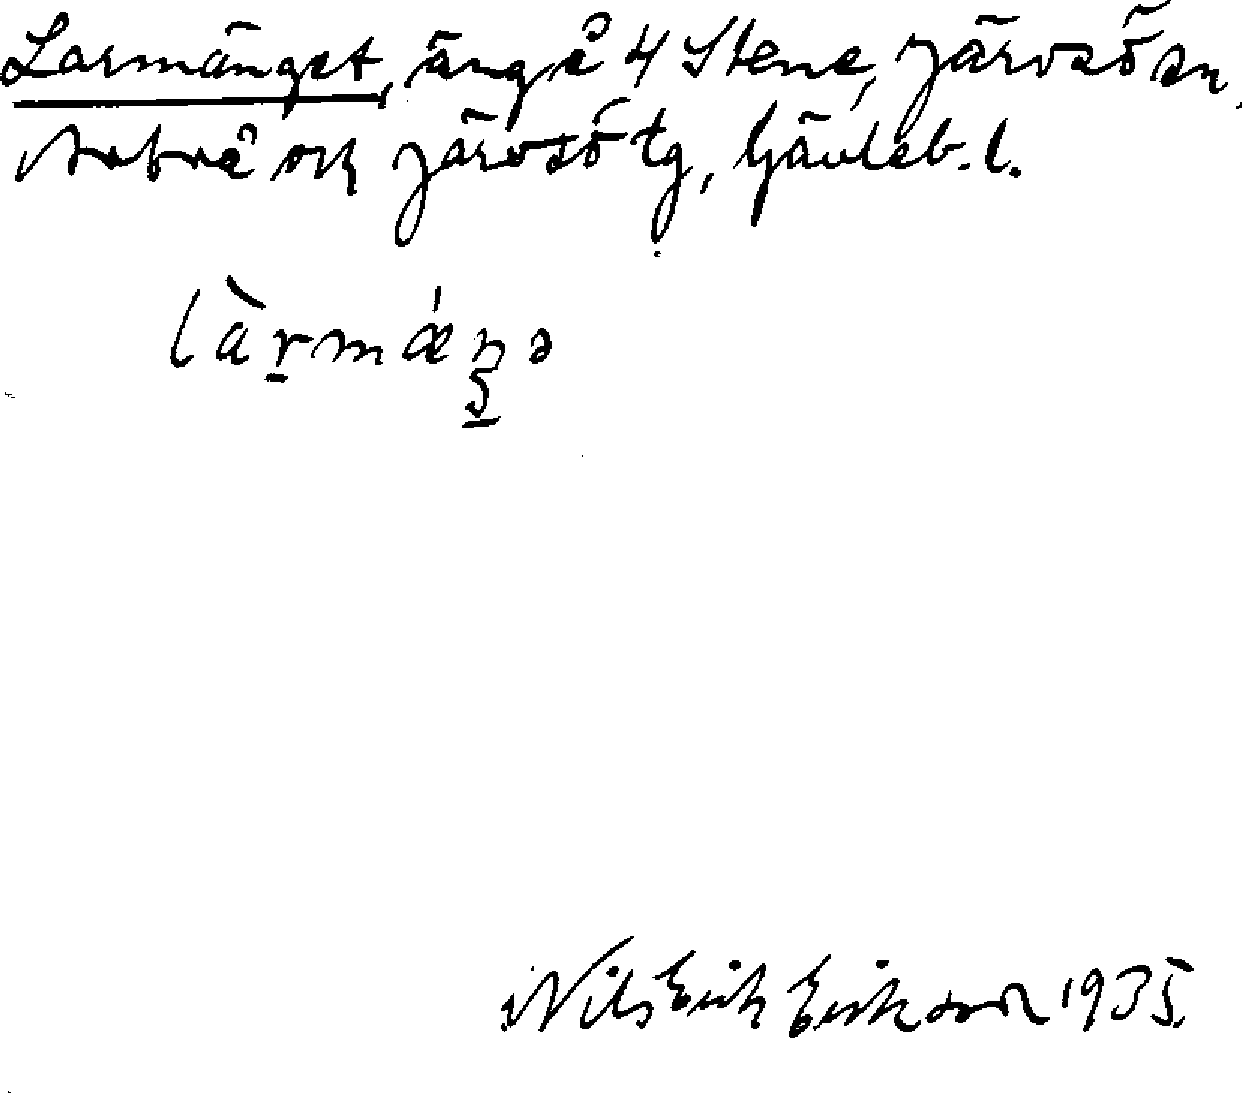 Larmänget, äng å 4 Stene, Järvsö sn,
Arbrå och Järvsö tg, Gävleb. l.
làrmǽŋə
Nils Erik Eriksson 1935.